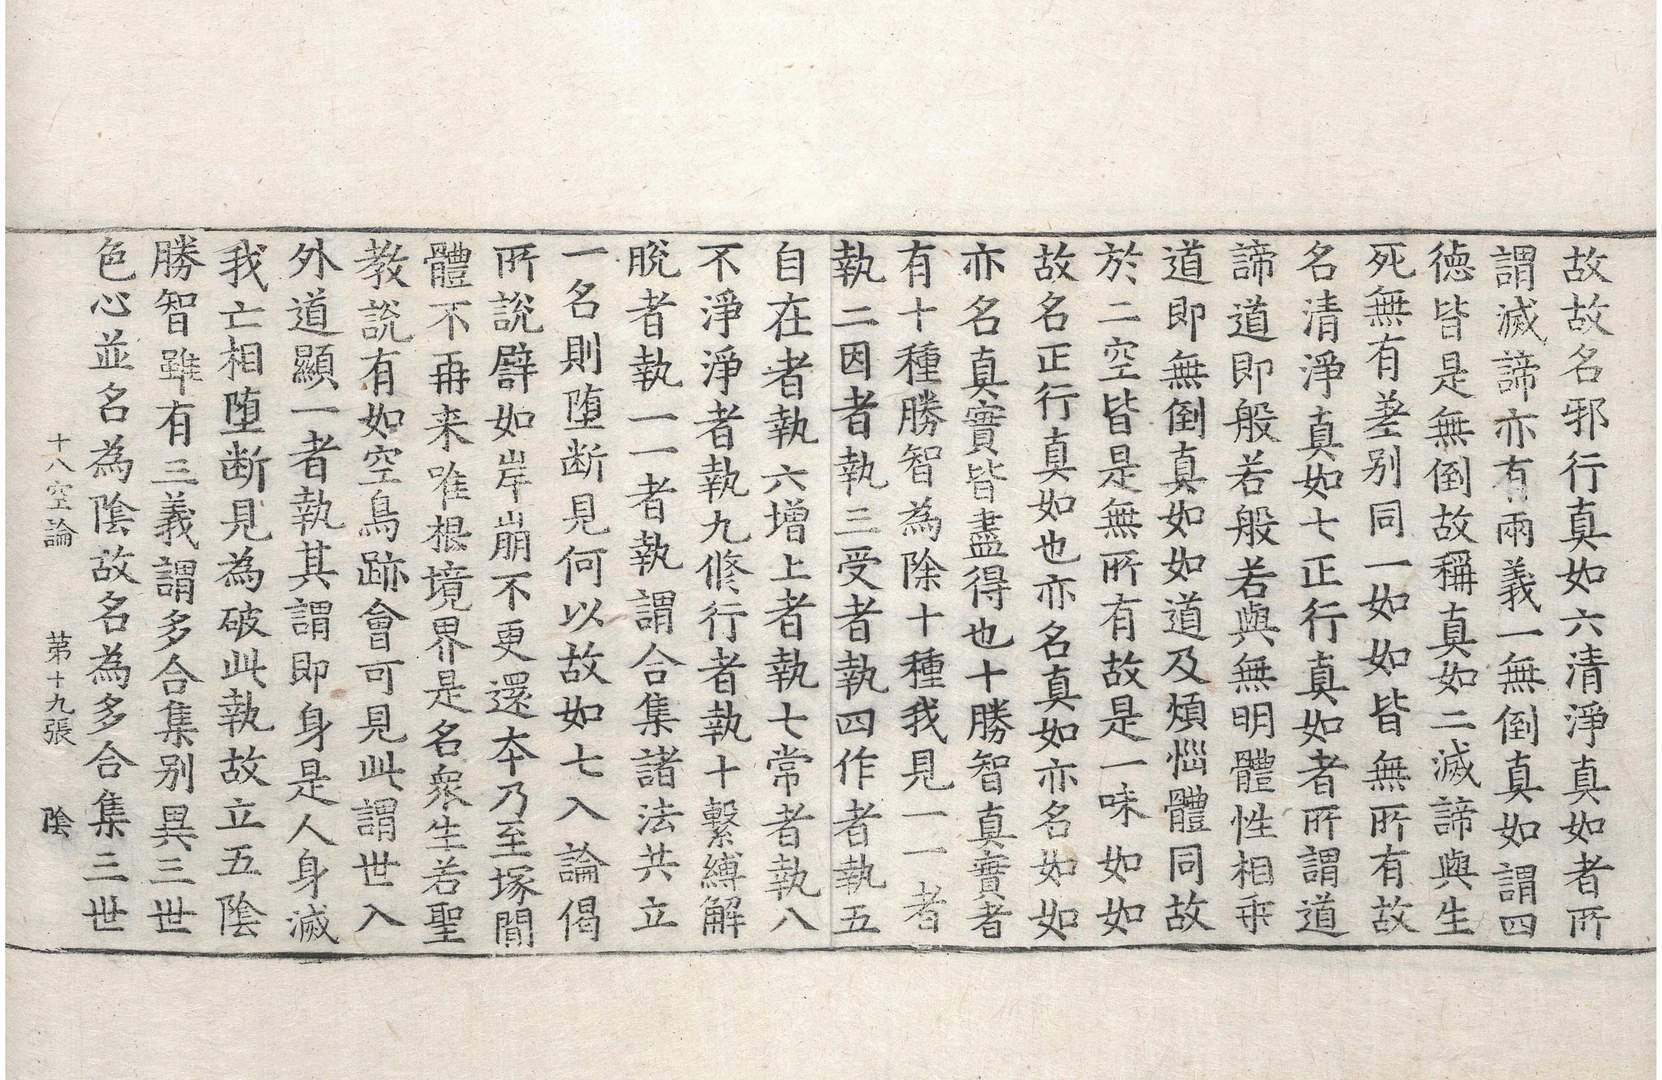 故故名邪行真如六清淨真如者所
謂滅諦亦有兩義一無倒真如謂四
德皆是無倒故稱真如二滅諦與生
死無有差别同一如如皆無所有故
名清淨真如七正行真如者所謂道
諦道即般若般若與無明體性相乖
道即無倒真如如道及煩惱體同故
於二空皆是無所有故是一味如如
故名正行真如也亦名真如亦名如如
亦名真實皆盡得也十勝智真實者
有十種勝智為除十種我見一一者
執二因者執三受者執四作者執五
自在者執六增上者執七常者執八
不淨淨者執九修行者執十繫縛解
脫者執一一者執謂合集諸法共立
一名則墮斷見何以故如七入論偈
所說譬如岸崩不更還本乃至塚間
體不再来唯根境界是名衆生若聖
教說有如空鳥跡會可見此謂世入
外道顯一者執其謂即身是人身滅
我亡相墮断見為破此執故立五陰
勝智雖有三義謂多合集别異三世
色心並名為陰故名為多合集三世
十八空論 第十九張 陰